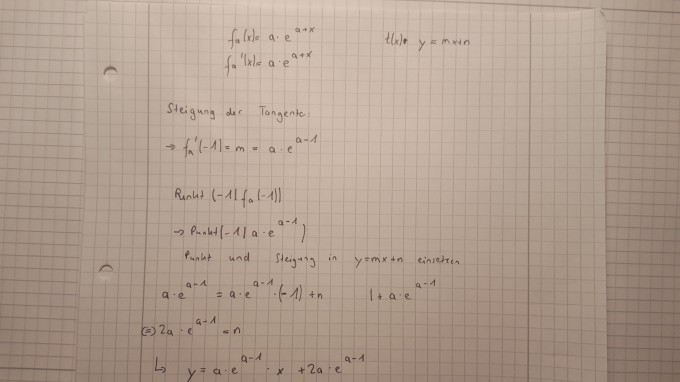 fₐ(x) = a · e^(a+x)    t(x): y = mx+n
fₐ'(x) = a · e^(a+x)
Steigung der Tangente:
→ fₐ'(-1) = m = a · e^(a-1)
Punkt (-1 | fₐ(-1))
→ Punkt (-1 | a · e^(a-1))
Punkt und Steigung in y=mx+n einsetzen
a · e^(a-1) = a · e^(a-1) · (-1) + n    | + a · e^(a-1)
(=) 2a · e^(a-1) = n
↳ y = a · e^(a-1) · x + 2a · e^(a-1)